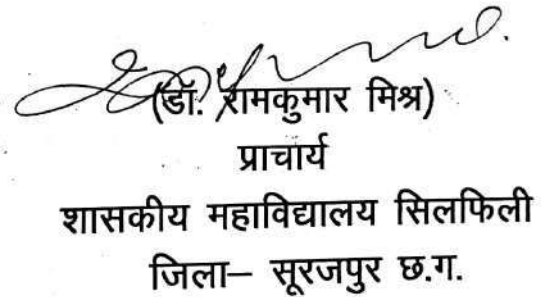 (डॉ. रामकुमार मिश्र)
प्राचार्य
शासकीय महाविद्यालय सिलफिली
जिला– सूरजपुर छ.ग.